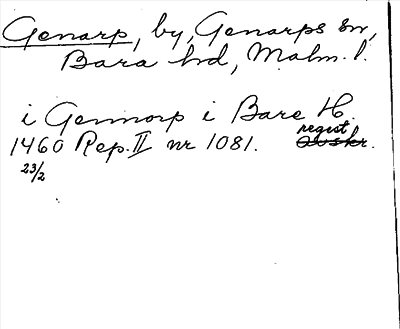 Genarp, by, Genarps sn,
Bara hd, Malm. l.
i Gennorp i Bare H.
regist.
1460 Rep. II nr 1081. Avskr.
23/2